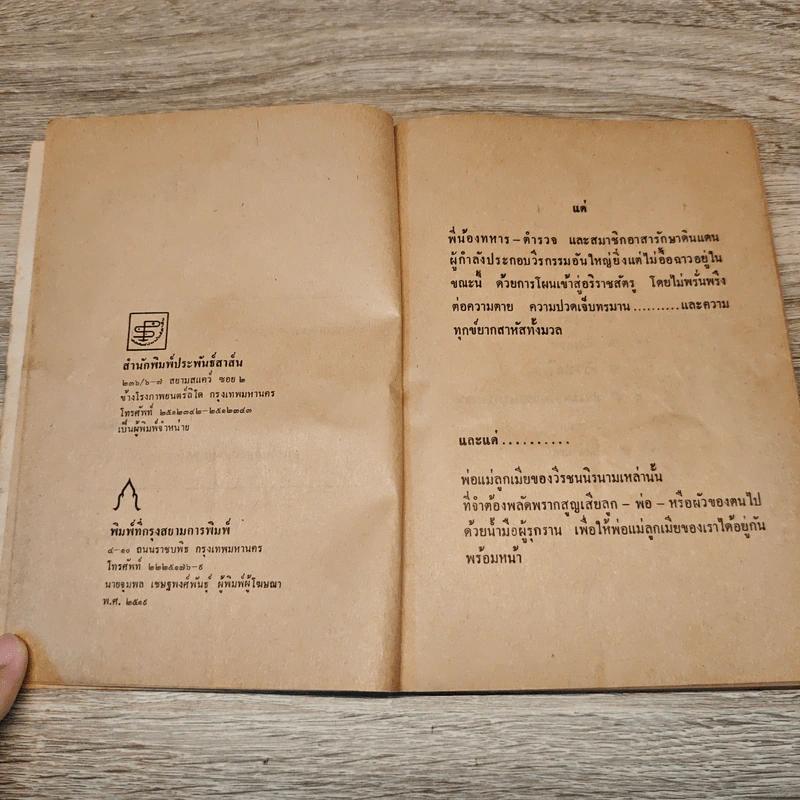 สำนักพิมพ์ประพันธ์สาส์น
๒๓๖/๖-๗ สยามสแควร์ ซอย ๒
ข้างโรงภาพยนตร์ลิโด กรุงเทพมหานคร
โทรศัพท์ ๒๕๑๒๓๔๒-๒๕๑๒๓๔๓
เป็นผู้พิมพ์จำหน่าย
พิมพ์ที่กรุงสยามการพิมพ์
๔-๑๐ ถนนราชบพิธ กรุงเทพมหานคร
โทรศัพท์ ๒๒๒๕๑๗๖-๙
นายจุมพล เชษฐพงศ์พันธุ์ ผู้พิมพ์ผู้โฆษณา
พ.ศ. ๒๕๑๙
แด่
พี่น้องทหาร – ตำรวจ และสมาชิกอาสารักษาดินแดน
ผู้กำลังประกอบวีรกรรมอันใหญ่ยิ่งแต่ไม่อื้อฉาวอยู่ใน
ขณะนี้ ด้วยการโผนเข้าสู่อริราชสัตรู โดยไม่พรั่นพรึง
ต่อความตาย ความปวดเจ็บทรมาน ..........และความ
ทุกข์ยากสาหัสทั้งมวล
และแด่ ..........
พ่อแม่ลูกเมียของวีรชนนิรนามเหล่านั้น
ที่จำต้องพลัดพรากสูญเสียลูก – พ่อ – หรือผัวของตนไป
ด้วยน้ำมือผู้รุกราน เพื่อให้พ่อแม่ลูกเมียของเราได้อยู่กัน
พร้อมหน้า